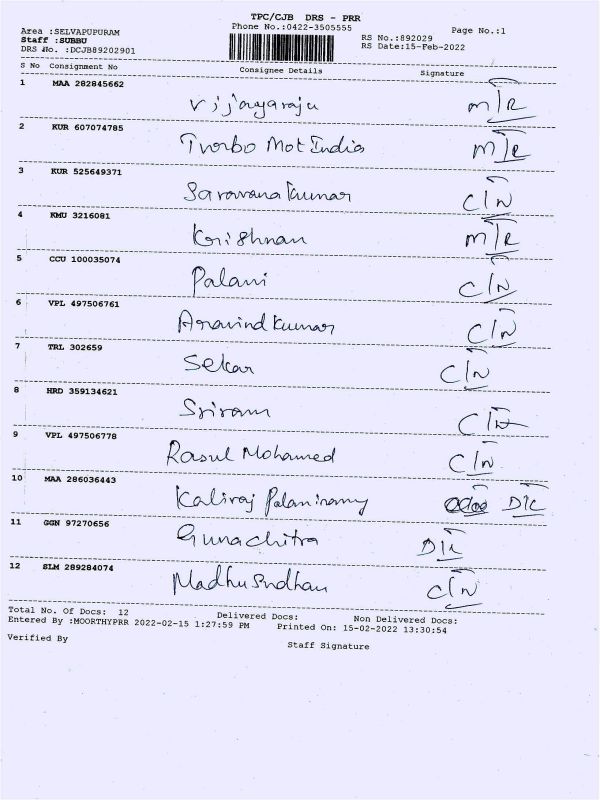 TPC/CJB DRS - PRR
Area :SELVAPUPURAM
Phone No.:0422-3505555
Page No.:1
Staff :SUBBU
RS No.:892029
DRS No. :DCJB89202901
RS Date:15-Feb-2022
S No Consignment No Consignee Details Signature
1 MAA 282845662
Vijayaraju M/R
2 KUR 607074785
Turbo Mot India M/R
3 KUR 525649371
Saravana Kumar C/N
4 KMU 3216081
Krishnan M/R
5 CCU 100035074
Palani C/N
6 VPL 497506761
Aravind Kumar C/N
7 TRL 302659
Sekar C/N
8 HRD 359134621
Sriram C/N
9 VPL 497506778
Rasul Mohamed C/N
10 MAA 286036443
Kaliraj Palanisamy D/L
11 GGN 97270656
Gunachitra D/L
12 SLM 289284074
Madhusudhan C/N
Total No. Of Docs: 12 Delivered Docs: Non Delivered Docs:
Entered By :MOORTHYPRR 2022-02-15 1:27:59 PM Printed On: 15-02-2022 13:30:54
Verified By
Staff Signature